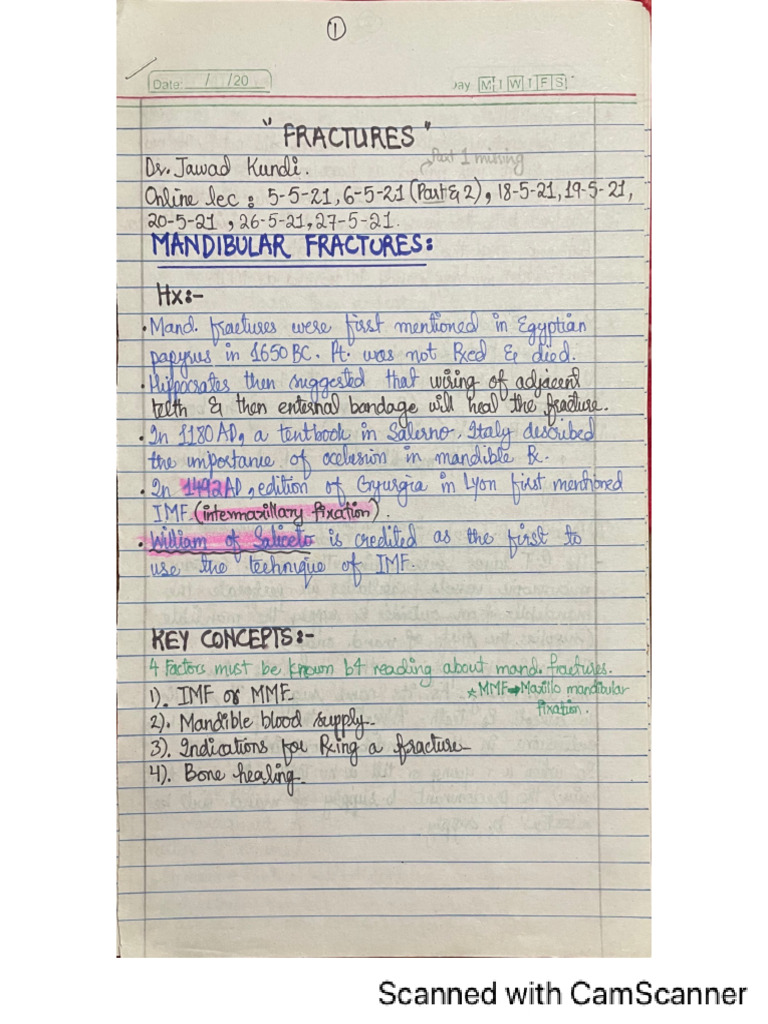 1
Date: / /20
Day M T W T F S
"FRACTURES"
Part 1 missing
Dr. Jawad Kundi.
Online lec : 5-5-21, 6-5-21 (Part & 2), 18-5-21, 19-5-21,
20-5-21, 26-5-21, 27-5-21.
MANDIBULAR FRACTURES:
Hx:-
• Mand. fractures were first mentioned in Egyptian
papyrus in 1650 BC. Pt. was not Rxed & died.
• Hippocrates then suggested that wiring of adjacent
teeth & then external bandage will heal the fracture.
• In 1180 AD, a textbook in Salerno, Italy described
the importance of occlusion in mandible Rx.
• In 1492 AD, edition of Cyurgia in Lyon first mentioned
IMF (intermaxillary fixation).
• William of Saliceto is credited as the first to
use the technique of IMF.
KEY CONCEPTS:-
4 Factors must be known b4 reading about mand. fractures.
1). IMF or MMF.
* MMF → Maxillo mandibular
fixation.
2). Mandible blood supply.
3). Indications for Rxing a fracture
4). Bone healing.
Scanned with CamScanner